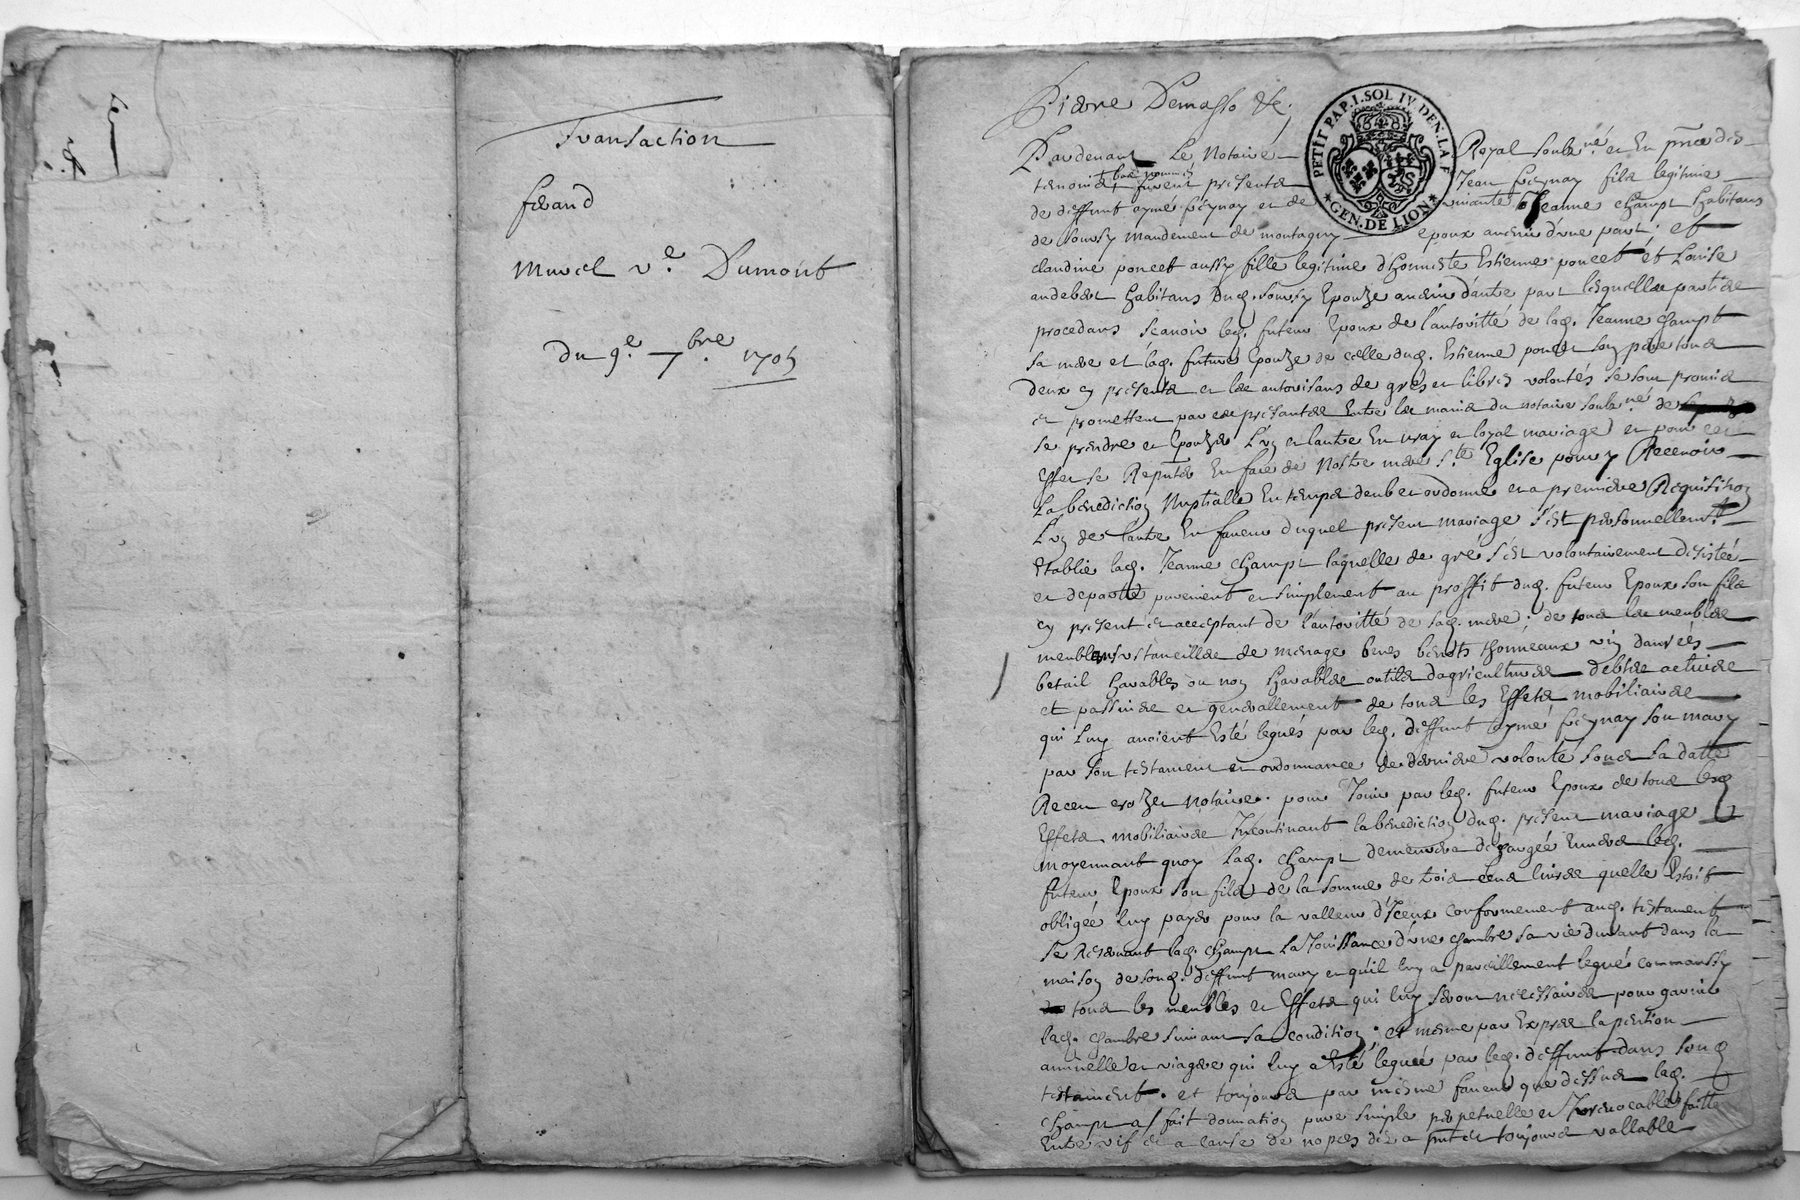 Transaction
feraud
Murel ve. Dumont
du 9e. 7bre 1705
Pierre Demasso &c;
PETIT PAP. I. SOL IV DEN. LA F
GEN. DE LION
Pardevant Le Notaire Royal soubz.né et En pnce des
tesmoins bas nommés furent presents Jean feynay fils legitime
de deffunt aymé feynay et de vivante Jeanne champt habitans
de sourzy mandement de montagny epoux avenir d'une part; et
claudine poncet aussy fille legitime d'honneste Estienne poncet et Louise
audebert habitans dud. sourzy Epouze avenir d'autre part lesquelles parties
procedans scavoir led. futeur Epoux de l'autoritté de lad. Jeanne champt
sa mere et lad. future Epouze de celle dud. Estienne poncet son pere tous
deux cy presents et les autorisans de grés et libres volontés se sont promis
et promettent par ces presantes Entre les mains du notaire soubz.né de
se prendre et Epouzer L'un et lautre En vray et loyal mariage et pour cet
Effet se En face de Nostre mere Ste. Eglise pour y Recevoir
La benediction Nuptialle En temps deub et ordonné et a premiere Requisition
L'un de lautre En faveur duquel present mariage s'est personnellemt.
Etablie lad. Jeanne champt laquelle de gré s'est volontairement desistée
et departie purement et simplement au proffit dud. futeur Epoux son fils
cy present et acceptant de l'autoritté de sad. mere; de tous les meubles
meublans ustancilles de menage benes benots thonneaux vin danrées
betail havables ou non havables outils dagriculture debtes actives
et passives et generallement de tous les Effets mobiliaires
qui luy avoient Esté legués par led. deffunt Eymé feynay son mary
par son testament et ordonnance de derniere volonté sous sa datte
Receu notaire. pour Jouir par led. futeur Epoux de tous lesd
Effets mobiliaires Incontinant la benediction dud. present mariage
moyennant quoy lad. champt demeurera dechargée Envers led.
futeur Epoux son fils de la somme de trois cens livres quelle Estoit
obligée luy payer pour la valleur d'Iceux conformement aud. testament
se Reservant lad. champt La Jouissance d'une chambre sa vie durant dans la
maison de soud. deffunt mary et qu'il luy a pareillement legué comme aussy
tous les meubles et Effets qui luy seront necessaires pour garnir
lad. chambre suivant sa condition; et mesme par Exprés la pention
annuelle et viagere qui luy a Esté leguée par led. deffunt dans soud
testament. et toujours par mesme faveur que dessus lad.
champt a fait donnation pure simple perpetuelle et Irrevocable faitte
Entre vif et a cause de nopces des a pnt et toujours vallable